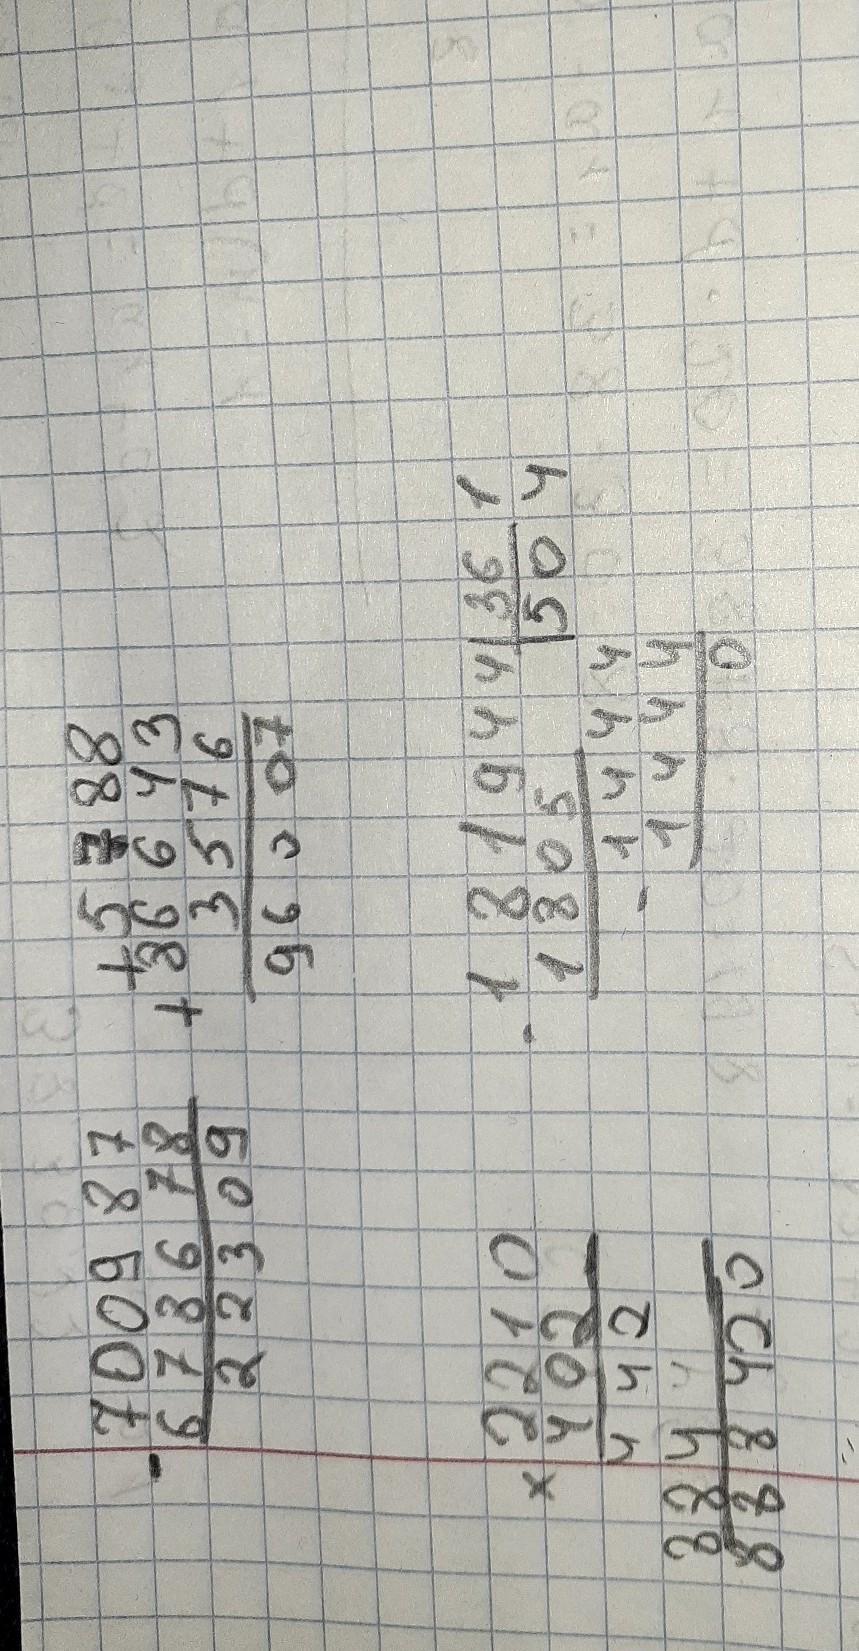 700987
- 678678
22309
+ 5788
+ 86643
3576
96007
2210
× 402
442
884
888420
- 181944 | 361
1805 | 504
1444
- 1444
0